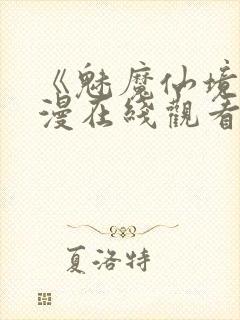 《魅魔仙境
漫在綫觀看
夏洛特